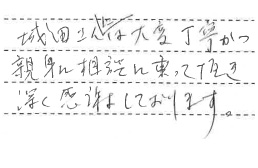 城田さんは大変丁寧かつ
親身に相談に乗って頂き
深く感謝しております。